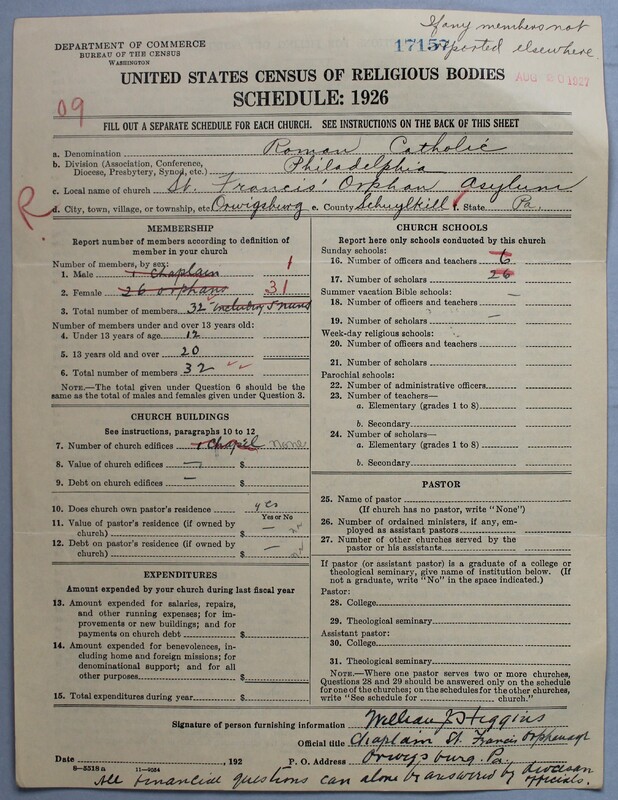 If any members not
reported elsewhere.
DEPARTMENT OF COMMERCE
BUREAU OF THE CENSUS
WASHINGTON
17157
AUG 20 1927
UNITED STATES CENSUS OF RELIGIOUS BODIES
SCHEDULE: 1926
09
FILL OUT A SEPARATE SCHEDULE FOR EACH CHURCH. SEE INSTRUCTIONS ON THE BACK OF THIS SHEET
a. Denomination Roman Catholic
b. Division (Association, Conference, Diocese, Presbytery, Synod, etc.) Philadelphia
c. Local name of church St. Francis' Orphan Asylum
R.
d. City, town, village, or township, etc. Orwigsburg e. County Schuylkill f. State Pa.
MEMBERSHIP
Report number of members according to definition of
member in your church
Number of members, by sex:
1. Male 1 Chaplain 1
2. Female 26 orphans 31
3. Total number of members 32 including 5 nuns
Number of members under and over 13 years old:
4. Under 13 years of age 12
5. 13 years old and over 20
6. Total number of members 32
NOTE.—The total given under Question 6 should be the
same as the total of males and females given under Question 3.
CHURCH BUILDINGS
See instructions, paragraphs 10 to 12
7. Number of church edifices 1 Chapel None
8. Value of church edifices — $
9. Debt on church edifices — $
10. Does church own pastor's residence yes
Yes or No
11. Value of pastor's residence (if owned by
church) $ —
12. Debt on pastor's residence (if owned by
church) $ —
EXPENDITURES
Amount expended by your church during last fiscal year
13. Amount expended for salaries, repairs,
and other running expenses; for im-
provements or new buildings; and for
payments on church debt $
14. Amount expended for benevolences, in-
cluding home and foreign missions; for
denominational support; and for all
other purposes $
15. Total expenditures during year $
CHURCH SCHOOLS
Report here only schools conducted by this church
Sunday schools:
16. Number of officers and teachers 6
17. Number of scholars 26
Summer vacation Bible schools: —
18. Number of officers and teachers
19. Number of scholars —
Week-day religious schools:
20. Number of officers and teachers
21. Number of scholars
Parochial schools:
22. Number of administrative officers
23. Number of teachers—
a. Elementary (grades 1 to 8)
b. Secondary
24. Number of scholars—
a. Elementary (grades 1 to 8)
b. Secondary
PASTOR
25. Name of pastor
(If church has no pastor, write "None")
26. Number of ordained ministers, if any, em-
ployed as assistant pastors
27. Number of other churches served by the
pastor or his assistants
If pastor (or assistant pastor) is a graduate of a college or
theological seminary, give name of institution below. (If
not a graduate, write "No" in the space indicated.)
Pastor:
28. College
29. Theological seminary
Assistant pastor:
30. College
31. Theological seminary
NOTE.—Where one pastor serves two or more churches,
Questions 28 and 29 should be answered only on the schedule
for one of the churches; on the schedules for the other churches,
write "See schedule for church."
Signature of person furnishing information William J. Higgins
Official title Chaplain St. Francis Orphanage
Date , 192 P. O. Address Orwigsburg. Pa.
8—5518 a 11—9054
All financial questions can alone be answered by diocesan
officials.